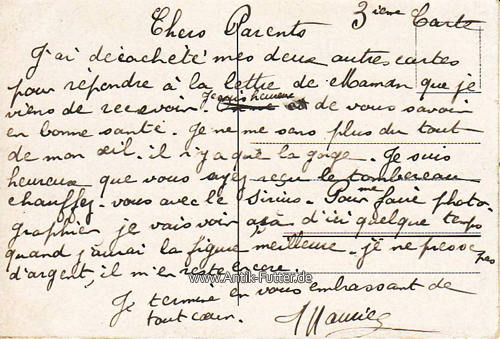 Chers Parents 3ième Carte
J'ai décacheté mes deux autres cartes
pour répondre à la lettre de Maman que je
viens de recevoir. Je suis heureux de vous savoir
en bonne santé. Je ne me sens plus du tout
de mon œil. il n'y a que la gorge. Je suis
heureux que vous ayez reçu le tombereau
chauffez-vous avec le Sirius. Pour me faire photo-
graphier je vais voir à d'ici quelque temps
quand j'aurai la figure meilleure. je ne presse pas
d'argent, il m'en reste encore.
www.Antik-Futter.de
Je termine en vous embrassant de
tout cœur.